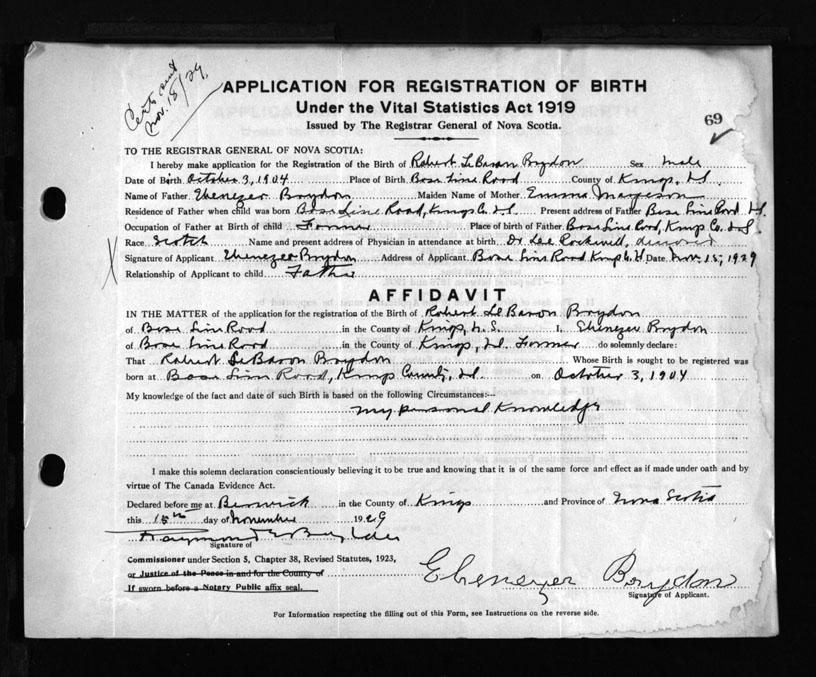 Certs sent
Nov. 15/29.
APPLICATION FOR REGISTRATION OF BIRTH
Under the Vital Statistics Act 1919
Issued by The Registrar General of Nova Scotia.
69
TO THE REGISTRAR GENERAL OF NOVA SCOTIA:
I hereby make application for the Registration of the Birth of Robert Le Baron Boydon Sex male
Date of Birth October 3, 1904 Place of Birth Base Line Road County of Kings, N.S.
Name of Father Ebenezer Boydon Maiden Name of Mother Emma Margeson
Residence of Father when child was born Base Line Road, Kings Co. N.S. Present address of Father Base Line Road N.S.
Occupation of Father at Birth of child Farmer Place of birth of Father Base Line Road, Kings Co. N.S.
Race Scotch Name and present address of Physician in attendance at birth Dr Rockwell, deceased
Signature of Applicant Ebenezer Boydon Address of Applicant Base Line Road Kings Co. Date Nov. 15, 1929
Relationship of Applicant to child Father
AFFIDAVIT
IN THE MATTER of the application for the registration of the Birth of Robert Le Baron Boydon
of Base Line Road in the County of Kings, N.S. I, Ebenezer Boydon
of Base Line Road in the County of Kings, N.S. Farmer do solemnly declare:
That Robert Le Baron Boydon Whose Birth is sought to be registered was
born at Base Line Road, Kings County, N.S. on October 3, 1904
My knowledge of the fact and date of such Birth is based on the following Circumstances:—
my personal knowledge
I make this solemn declaration conscientiously believing it to be true and knowing that it is of the same force and effect as if made under oath and by
virtue of The Canada Evidence Act.
Declared before me at Berwick in the County of Kings and Province of Nova Scotia
this 15th day of November 1929
Raymond
Signature of
Commissioner under Section 5, Chapter 38, Revised Statutes, 1923,
or Justice of the Peace in and for the County of
If sworn before a Notary Public affix seal.
Ebenezer Boydon
Signature of Applicant.
For Information respecting the filling out of this Form, see Instructions on the reverse side.